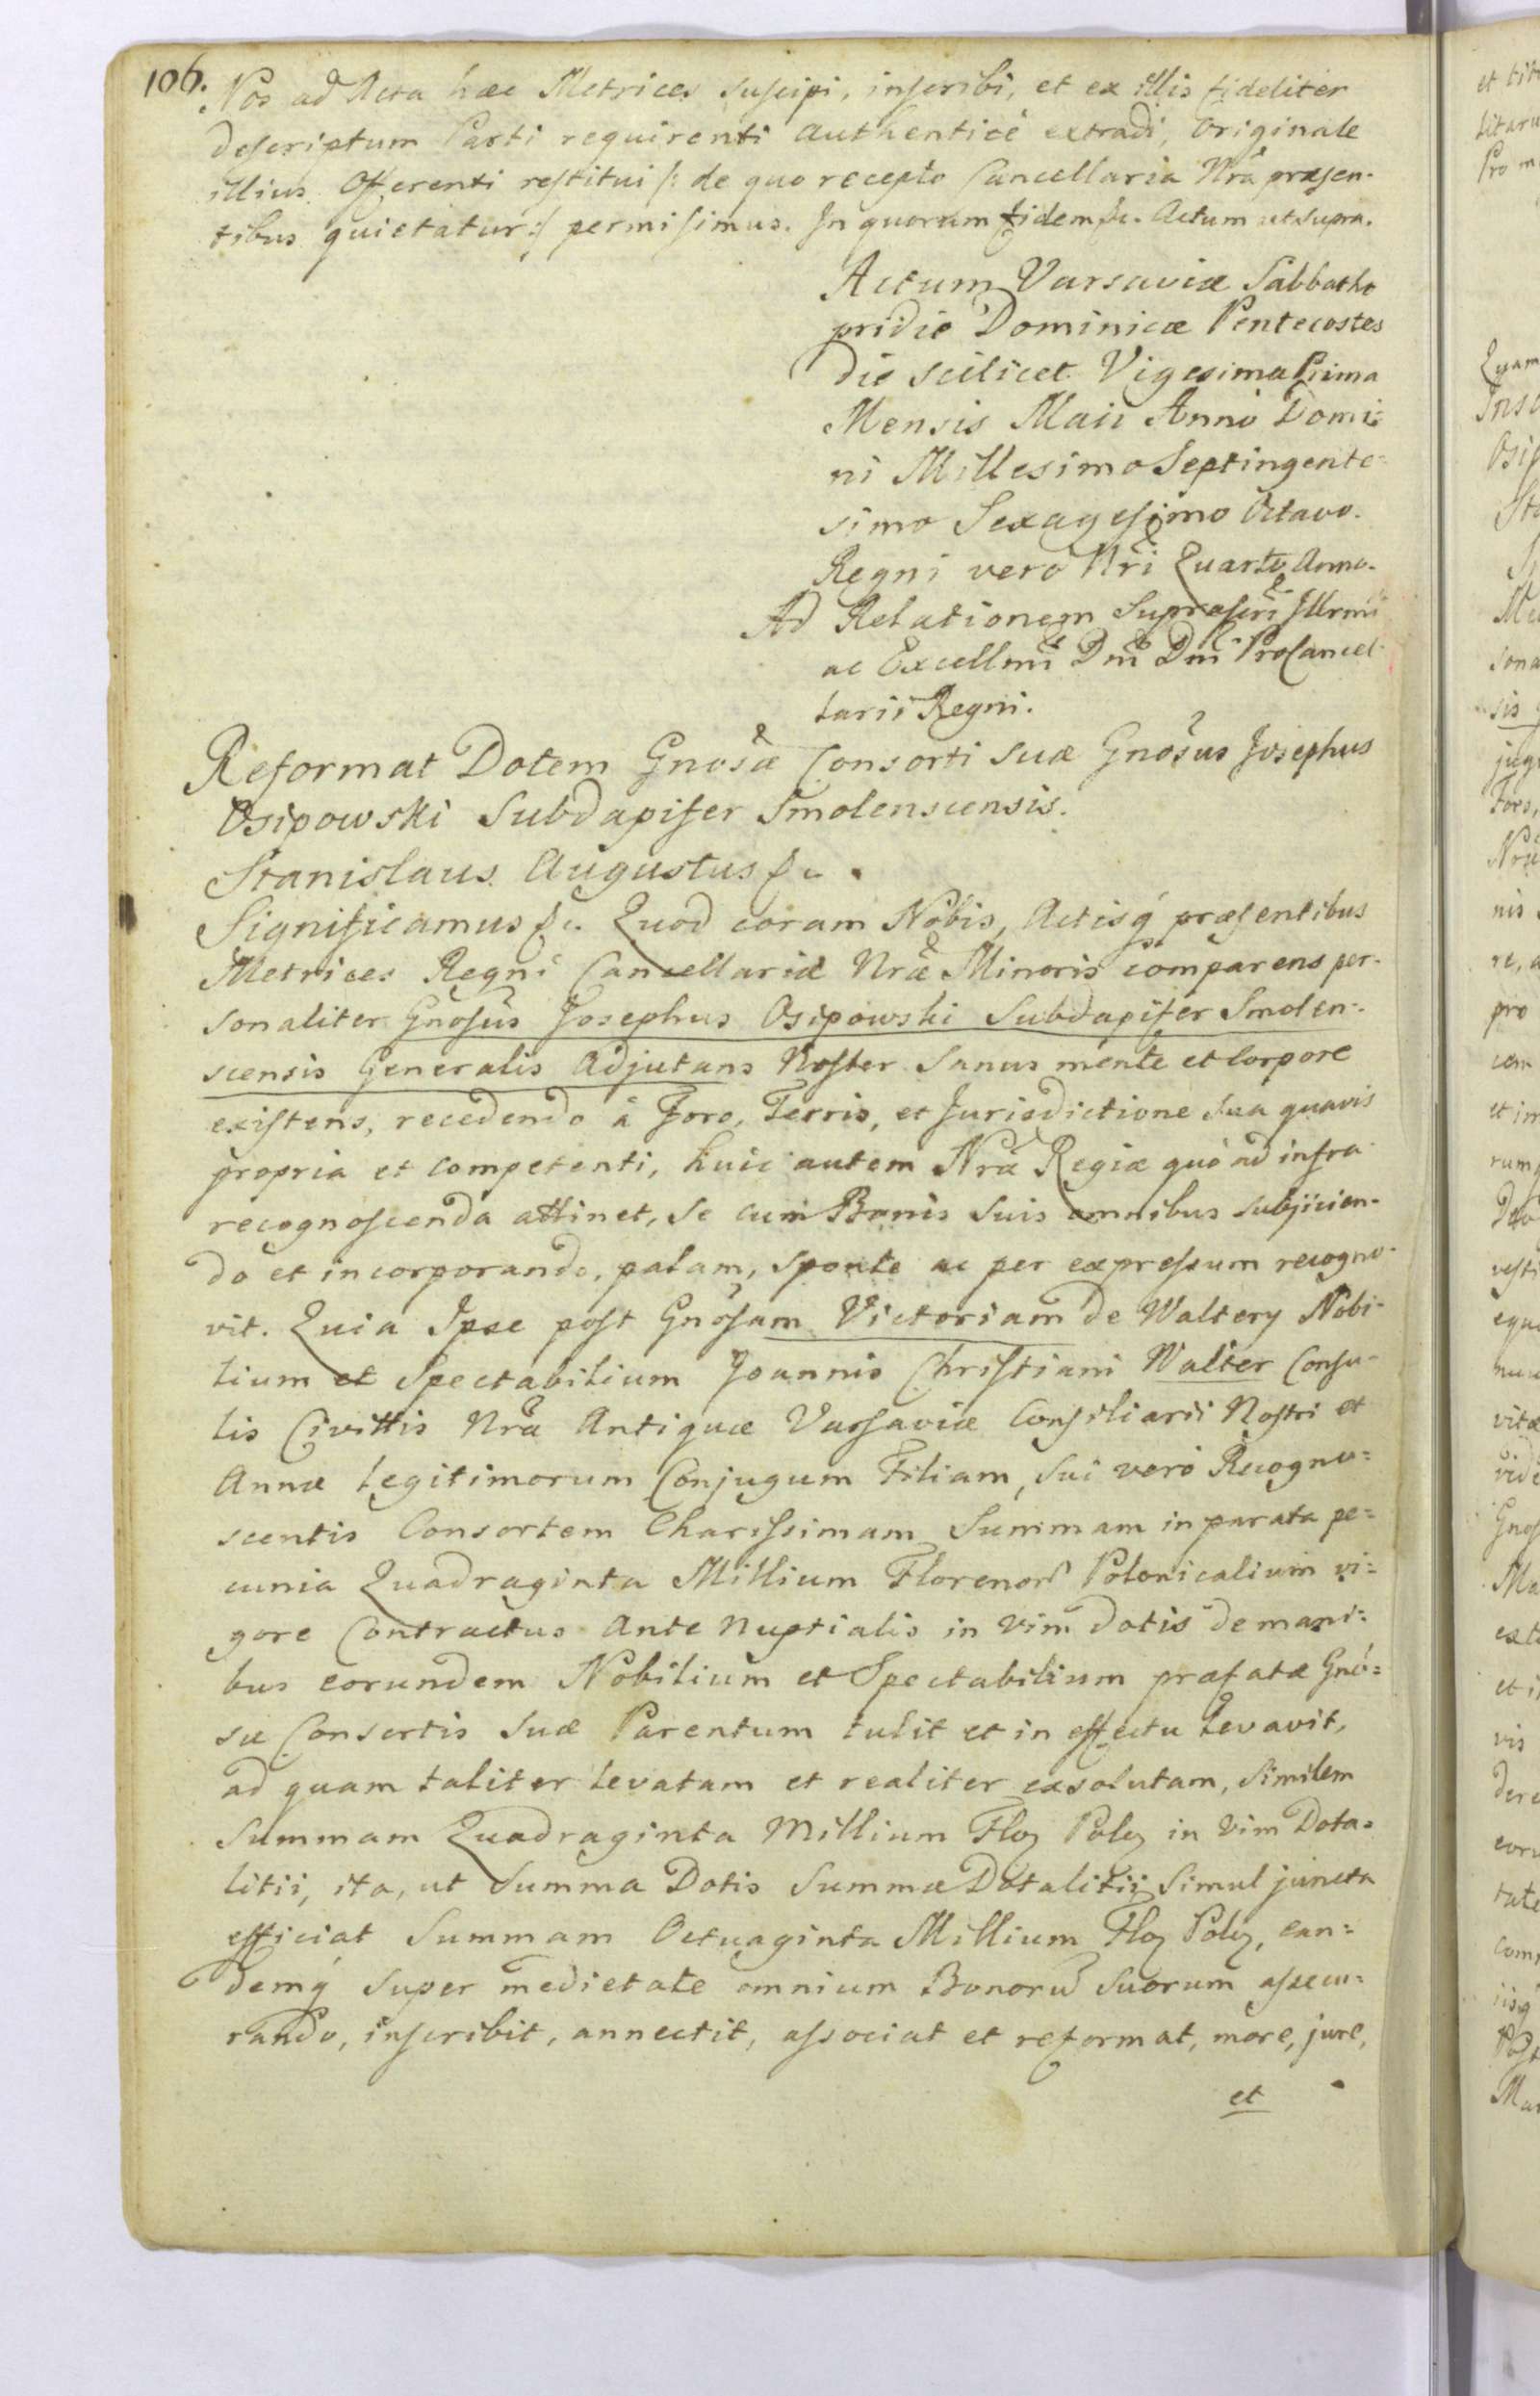 106.
Nos ad Acta hæc Metrices suscipi, inscribi, et ex illis fideliter
descriptum Parti requirenti authenticè extradi, Originale
illius Offerenti restitui /: de quo recepto Cancellaria Nrã præsen-
tibus quietatur :/ permisimus. In quorum fidem &c. Actum ut supra.
Actum Varsaviæ Sabbatho
pridie Dominicæ Pentecostes
die scilicet Vigesima Prima
Mensis Maii Anno Domi:
ni Millesimo Septingente:
simo Sexagesimo Octavo.
Regni vero Nri Quarto Anno.
Ad Relationem Suprascri Illrmi
ac Excellmi Dni Dni ProCancel-
larii Regni.
Reformat Dotem Gnosæ Consorti suæ Gnosus Josephus
Osipowski Subdapifer Smolenscensis.
Stanislaus Augustus &c.
Significamus &c. Quod coram Nobis, Actisq́ præsentibus
Metrices Regni Cancellariæ Nræ Minoris comparens per-
sonaliter Gnosus Josephus Osipowski Subdapifer Smolen-
scensis Generalis Adjutans Noster sanus mente et Corpore
existens, recedendo à Foro, Terris, et Jurisdictione sua quavis
propria et competenti, huic autem Nrã Regiæ quò ad infra
recognoscenda attinet, se cum Bonis suis omnibus subjicien-
do et incorporando, palam, sponte ac per expressum recogno-
vit. Quia Ipse post Gnosam Victoriam de Waltery Nobi-
lium et Spectabilium Joannis Christiani Walter Consu-
lis Civittis Nrã Antiquæ Varsaviæ Consiliarii Nostri et
Annæ legitimorum Conjugum Filiam, sui verò Recogno=
scentis Consortem Charissimam Summam in parata pe=
cunia Quadraginta Millium Florenor Polonicalium vi=
gore Contractus Ante nuptialis in vim dotis de mani=
bus eorundem Nobilium et Spectabilium præfatæ Gnó=
sæ Consortis suæ Parentum tulit et in effectu levavit,
ad quam taliter levatam et realiter exsolutam, similem
Summam Quadraginta Millium Flor Polcz in vim Dota=
litii, ita, ut Summa Dotis Summæ Dotalitii simul juncta
efficiat Summam Octuaginta Millium Flor Polcz, ean=
demq́ super medietate omnium Bonorũ suorum assecu=
rando, inscribit, annectit, associat et reformat, more, jure,
et